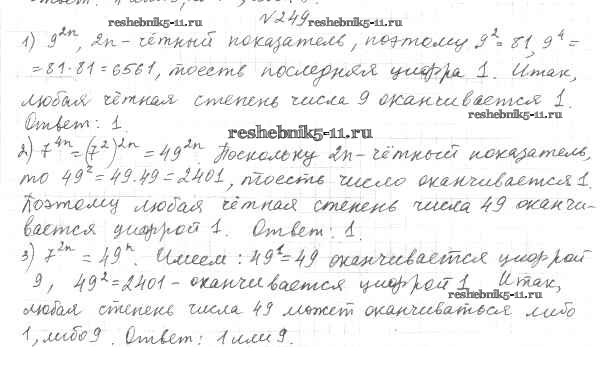 reshebnik5-11.ru
№249
reshebnik5-11.ru
1) 9²ⁿ, 2n - чётный показатель, поэтому 9² = 81, 9⁴ =
= 81·81 = 6561, тоесть последняя цифра 1. Итак,
любая чётная степень числа 9 оканчивается 1.
reshebnik5-11.ru
Ответ: 1.
reshebnik5-11.ru
2) 7⁴ⁿ = (7²)²ⁿ = 49²ⁿ. Поскольку 2n - чётный показатель,
то 49² = 49·49 = 2401, тоесть число оканчивается 1.
Поэтому любая чётная степень числа 49 оканчи-
вается цифрой 1. Ответ: 1.
3) 7²ⁿ = 49ⁿ. Имеем: 49¹ = 49 оканчивается цифрой
9, 49² = 2401 - оканчивается цифрой 1. Итак,
reshebnik5-11.ru
любая степень числа 49 может оканчиваться либо
1, либо 9. Ответ: 1 или 9.
reshebnik5-11.ru